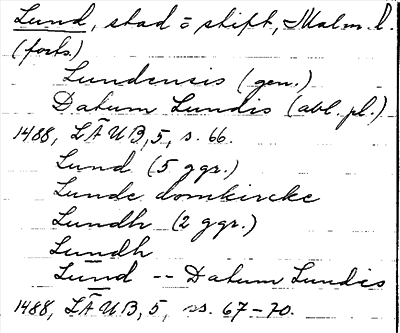 Lund, stad o stift, Malm. l.
(forts.)
Lundensis (gen.)
Datum Lundis (abl. pl.)
1488, LÄUB, 5, s. 66.
Lund (5 ggr.)
Lunde domkircke
Lundh (2 ggr.)
Lundh
Lund -- Datum Lundis
1488, LÄUB, 5, ss. 67-70.